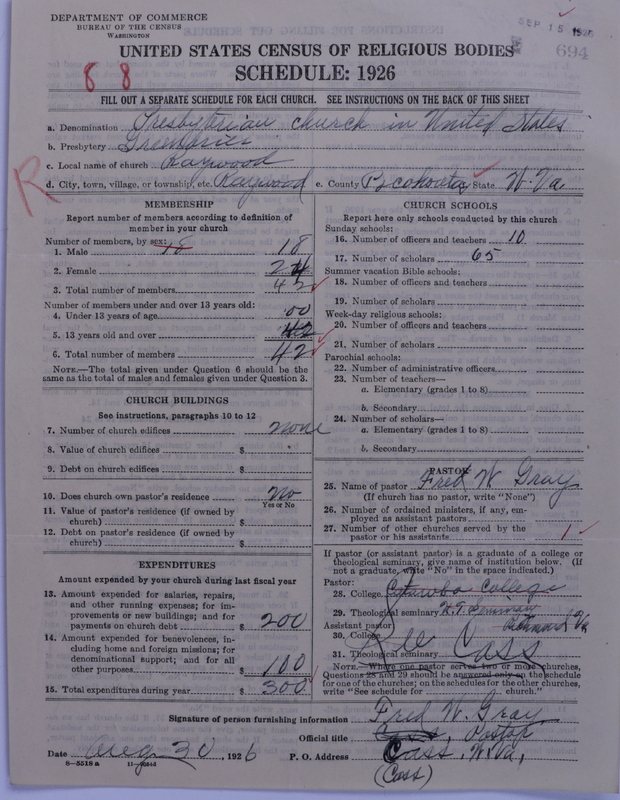 DEPARTMENT OF COMMERCE
BUREAU OF THE CENSUS
WASHINGTON
SEP 15 1926
694
UNITED STATES CENSUS OF RELIGIOUS BODIES
SCHEDULE: 1926
8 8
FILL OUT A SEPARATE SCHEDULE FOR EACH CHURCH. SEE INSTRUCTIONS ON THE BACK OF THIS SHEET
a. Denomination Presbyterian church in United States
b. Presbytery Greenbrier
c. Local name of church Raywood
R
d. City, town, village, or township, etc. Raywood e. County Pocahontas State W. Va.
MEMBERSHIP
Report number of members according to definition of
member in your church
Number of members, by sex:
1. Male 18
2. Female 24
3. Total number of members 42
Number of members under and over 13 years old:
4. Under 13 years of age 00
5. 13 years old and over 42
6. Total number of members 42
NOTE.—The total given under Question 6 should be the
same as the total of males and females given under Question 3.
CHURCH BUILDINGS
See instructions, paragraphs 10 to 12
7. Number of church edifices none
8. Value of church edifices $
9. Debt on church edifices $
10. Does church own pastor's residence No
Yes or No
11. Value of pastor's residence (if owned by
church) $
12. Debt on pastor's residence (if owned by
church) $
EXPENDITURES
Amount expended by your church during last fiscal year
13. Amount expended for salaries, repairs,
and other running expenses; for im-
provements or new buildings; and for
payments on church debt $ 200
14. Amount expended for benevolences, in-
cluding home and foreign missions; for
denominational support; and for all
other purposes $ 100
15. Total expenditures during year $ 300
CHURCH SCHOOLS
Report here only schools conducted by this church
Sunday schools:
16. Number of officers and teachers 10
17. Number of scholars 65
Summer vacation Bible schools:
18. Number of officers and teachers
19. Number of scholars
Week-day religious schools:
20. Number of officers and teachers
21. Number of scholars
Parochial schools:
22. Number of administrative officers
23. Number of teachers—
a. Elementary (grades 1 to 8)
b. Secondary
24. Number of scholars—
a. Elementary (grades 1 to 8)
b. Secondary
PASTOR
25. Name of pastor Fred W. Gray
(If church has no pastor, write "None")
26. Number of ordained ministers, if any, em-
ployed as assistant pastors
27. Number of other churches served by the
pastor or his assistants 1
If pastor (or assistant pastor) is a graduate of a college or
theological seminary, give name of institution below. (If
not a graduate, write "No" in the space indicated.)
Pastor:
28. College Catawba College
29. Theological seminary Seminary
Richmond Va
Assistant pastor:
30. College
31. Theological seminary
See Cass
NOTE.—Where one pastor serves two or more churches,
Questions 28 and 29 should be answered only on the schedule
for one of the churches; on the schedules for the other churches,
write "See schedule for church."
Signature of person furnishing information Fred W. Gray
Official title Pastor
Date Aug 30, 1926 P. O. Address Cass, W. Va,
(Cass)
8-5518a